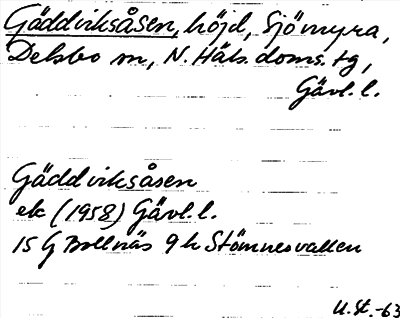 Gäddviksåsen, höjd, Sjömyra,
Delsbo sn, N. Häls. doms. tg,
Gävl. l.
Gäddviksåsen
ek (1958) Gävl. l.
15 G Bollnäs 9 h Stömnesvallen
U. St. -63